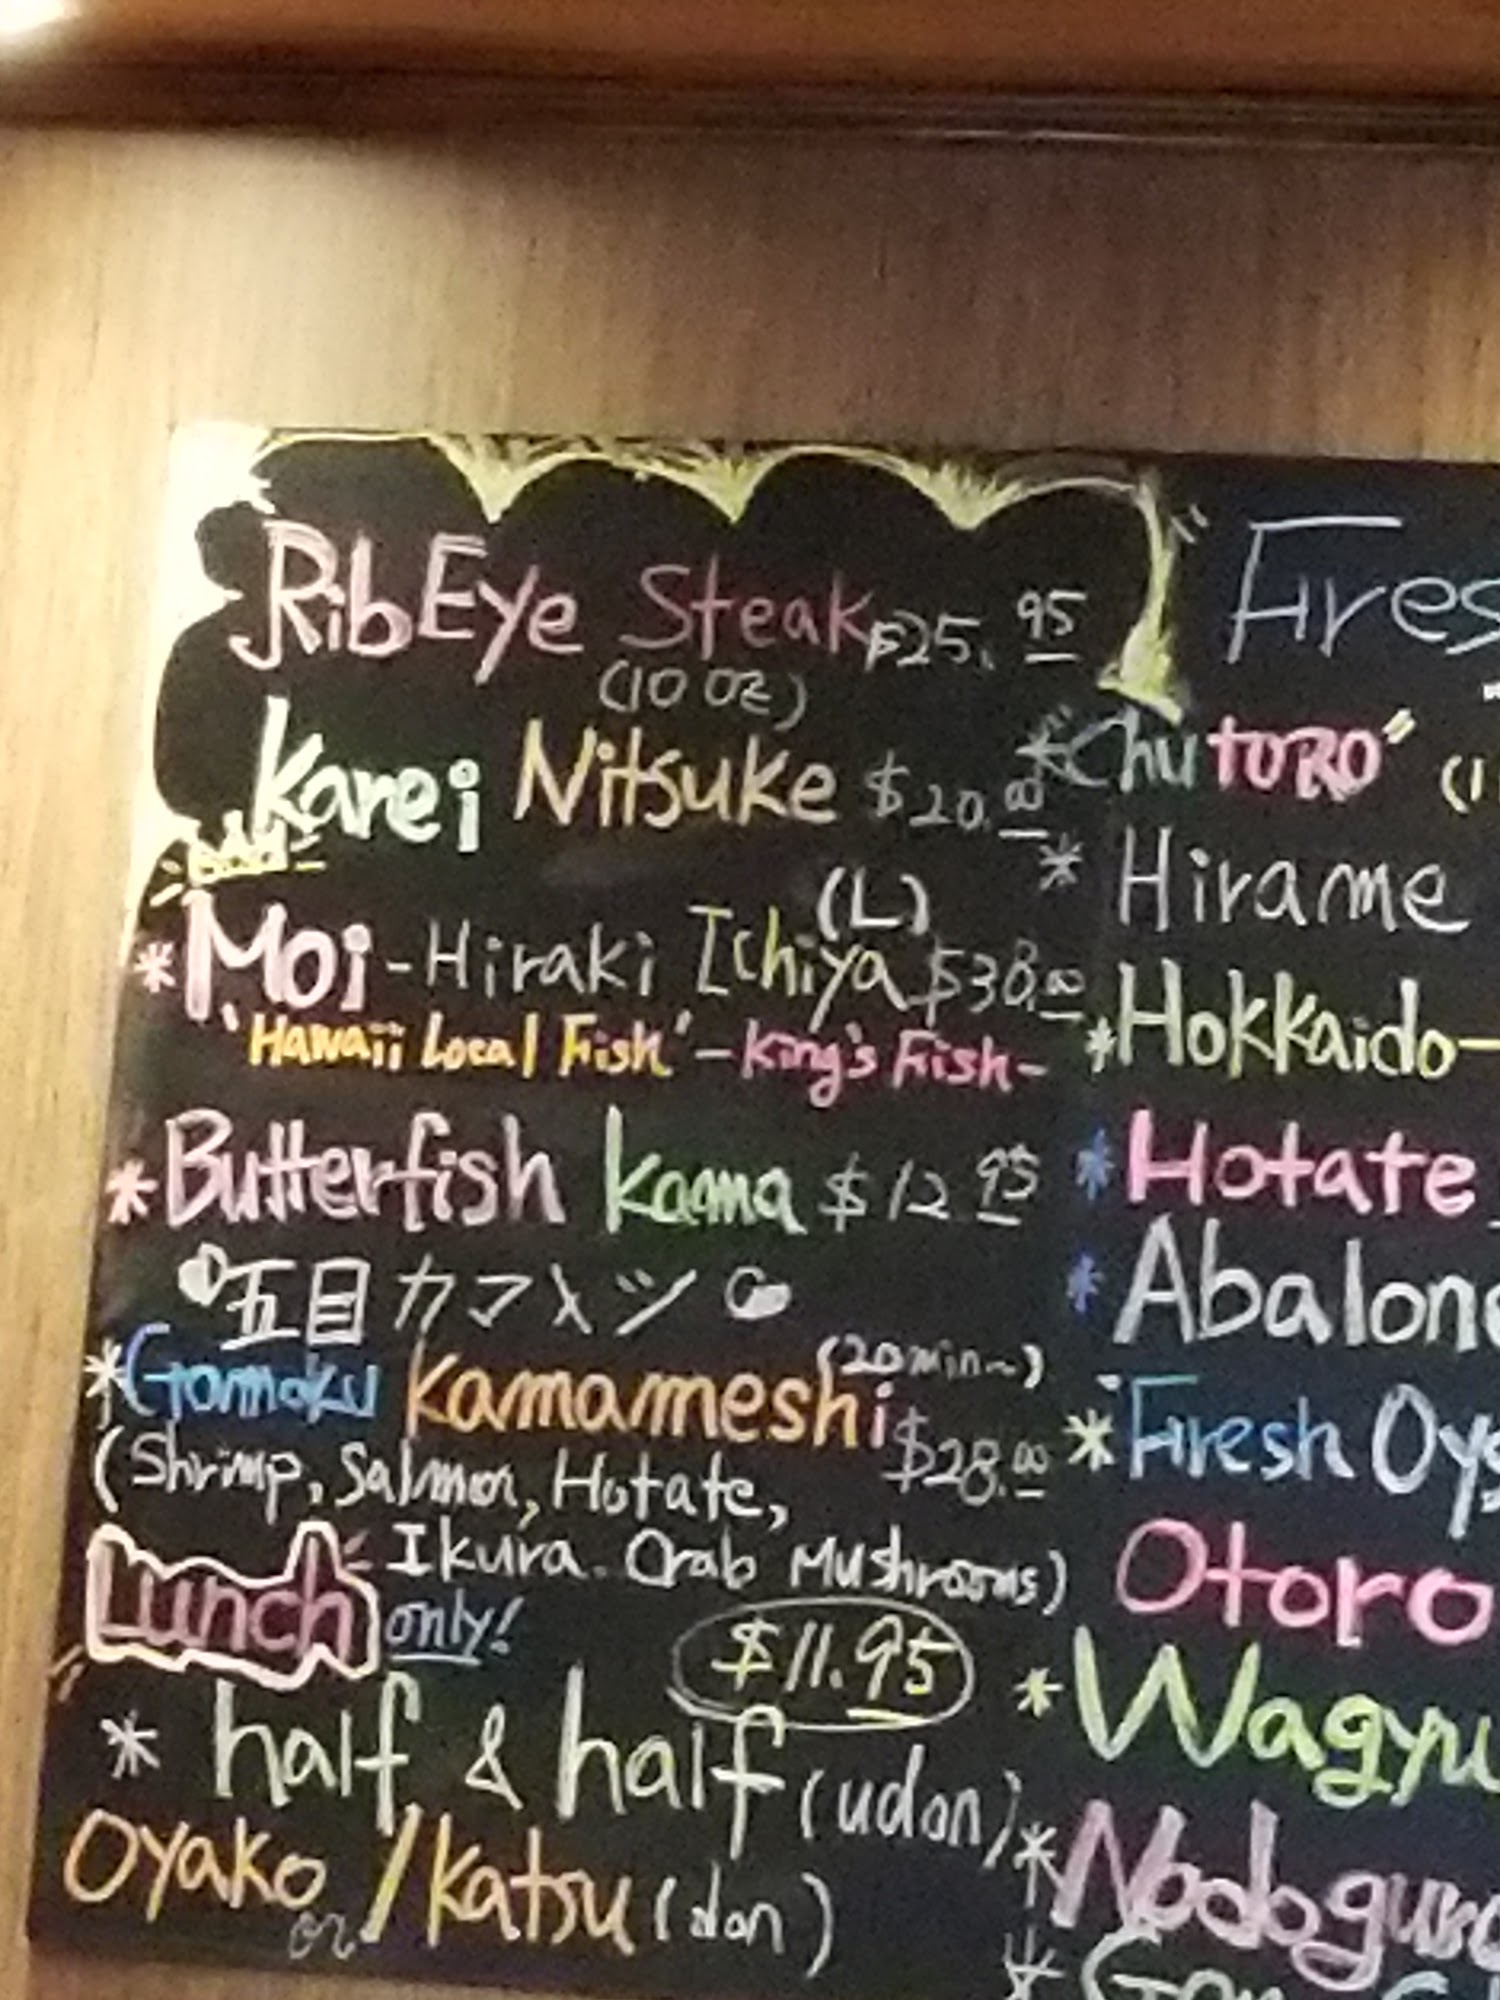 RibEye Steak $25.95
(10 oz)
Karei Nitsuke $20.00
(L)
*Moi-Hiraki Ichiya $38.00
'Hawaii Local Fish' -King's Fish-
*Butterfish Kama $12.95
五目カマメシ
*Gomoku Kamameshi (20min~)
$28.00
(Shrimp, Salmon, Hotate,
Ikura. Crab Mushrooms)
Lunch only!
$11.95
* half & half (udon)
Oyako or / Katsu (don)
"Fres
*"Chu TORO" (1
* Hirame
*Hokkaido-
*Hotate
*Abalon
*Fresh Oys
Otoro
*Wagyu
*Nodogur
*